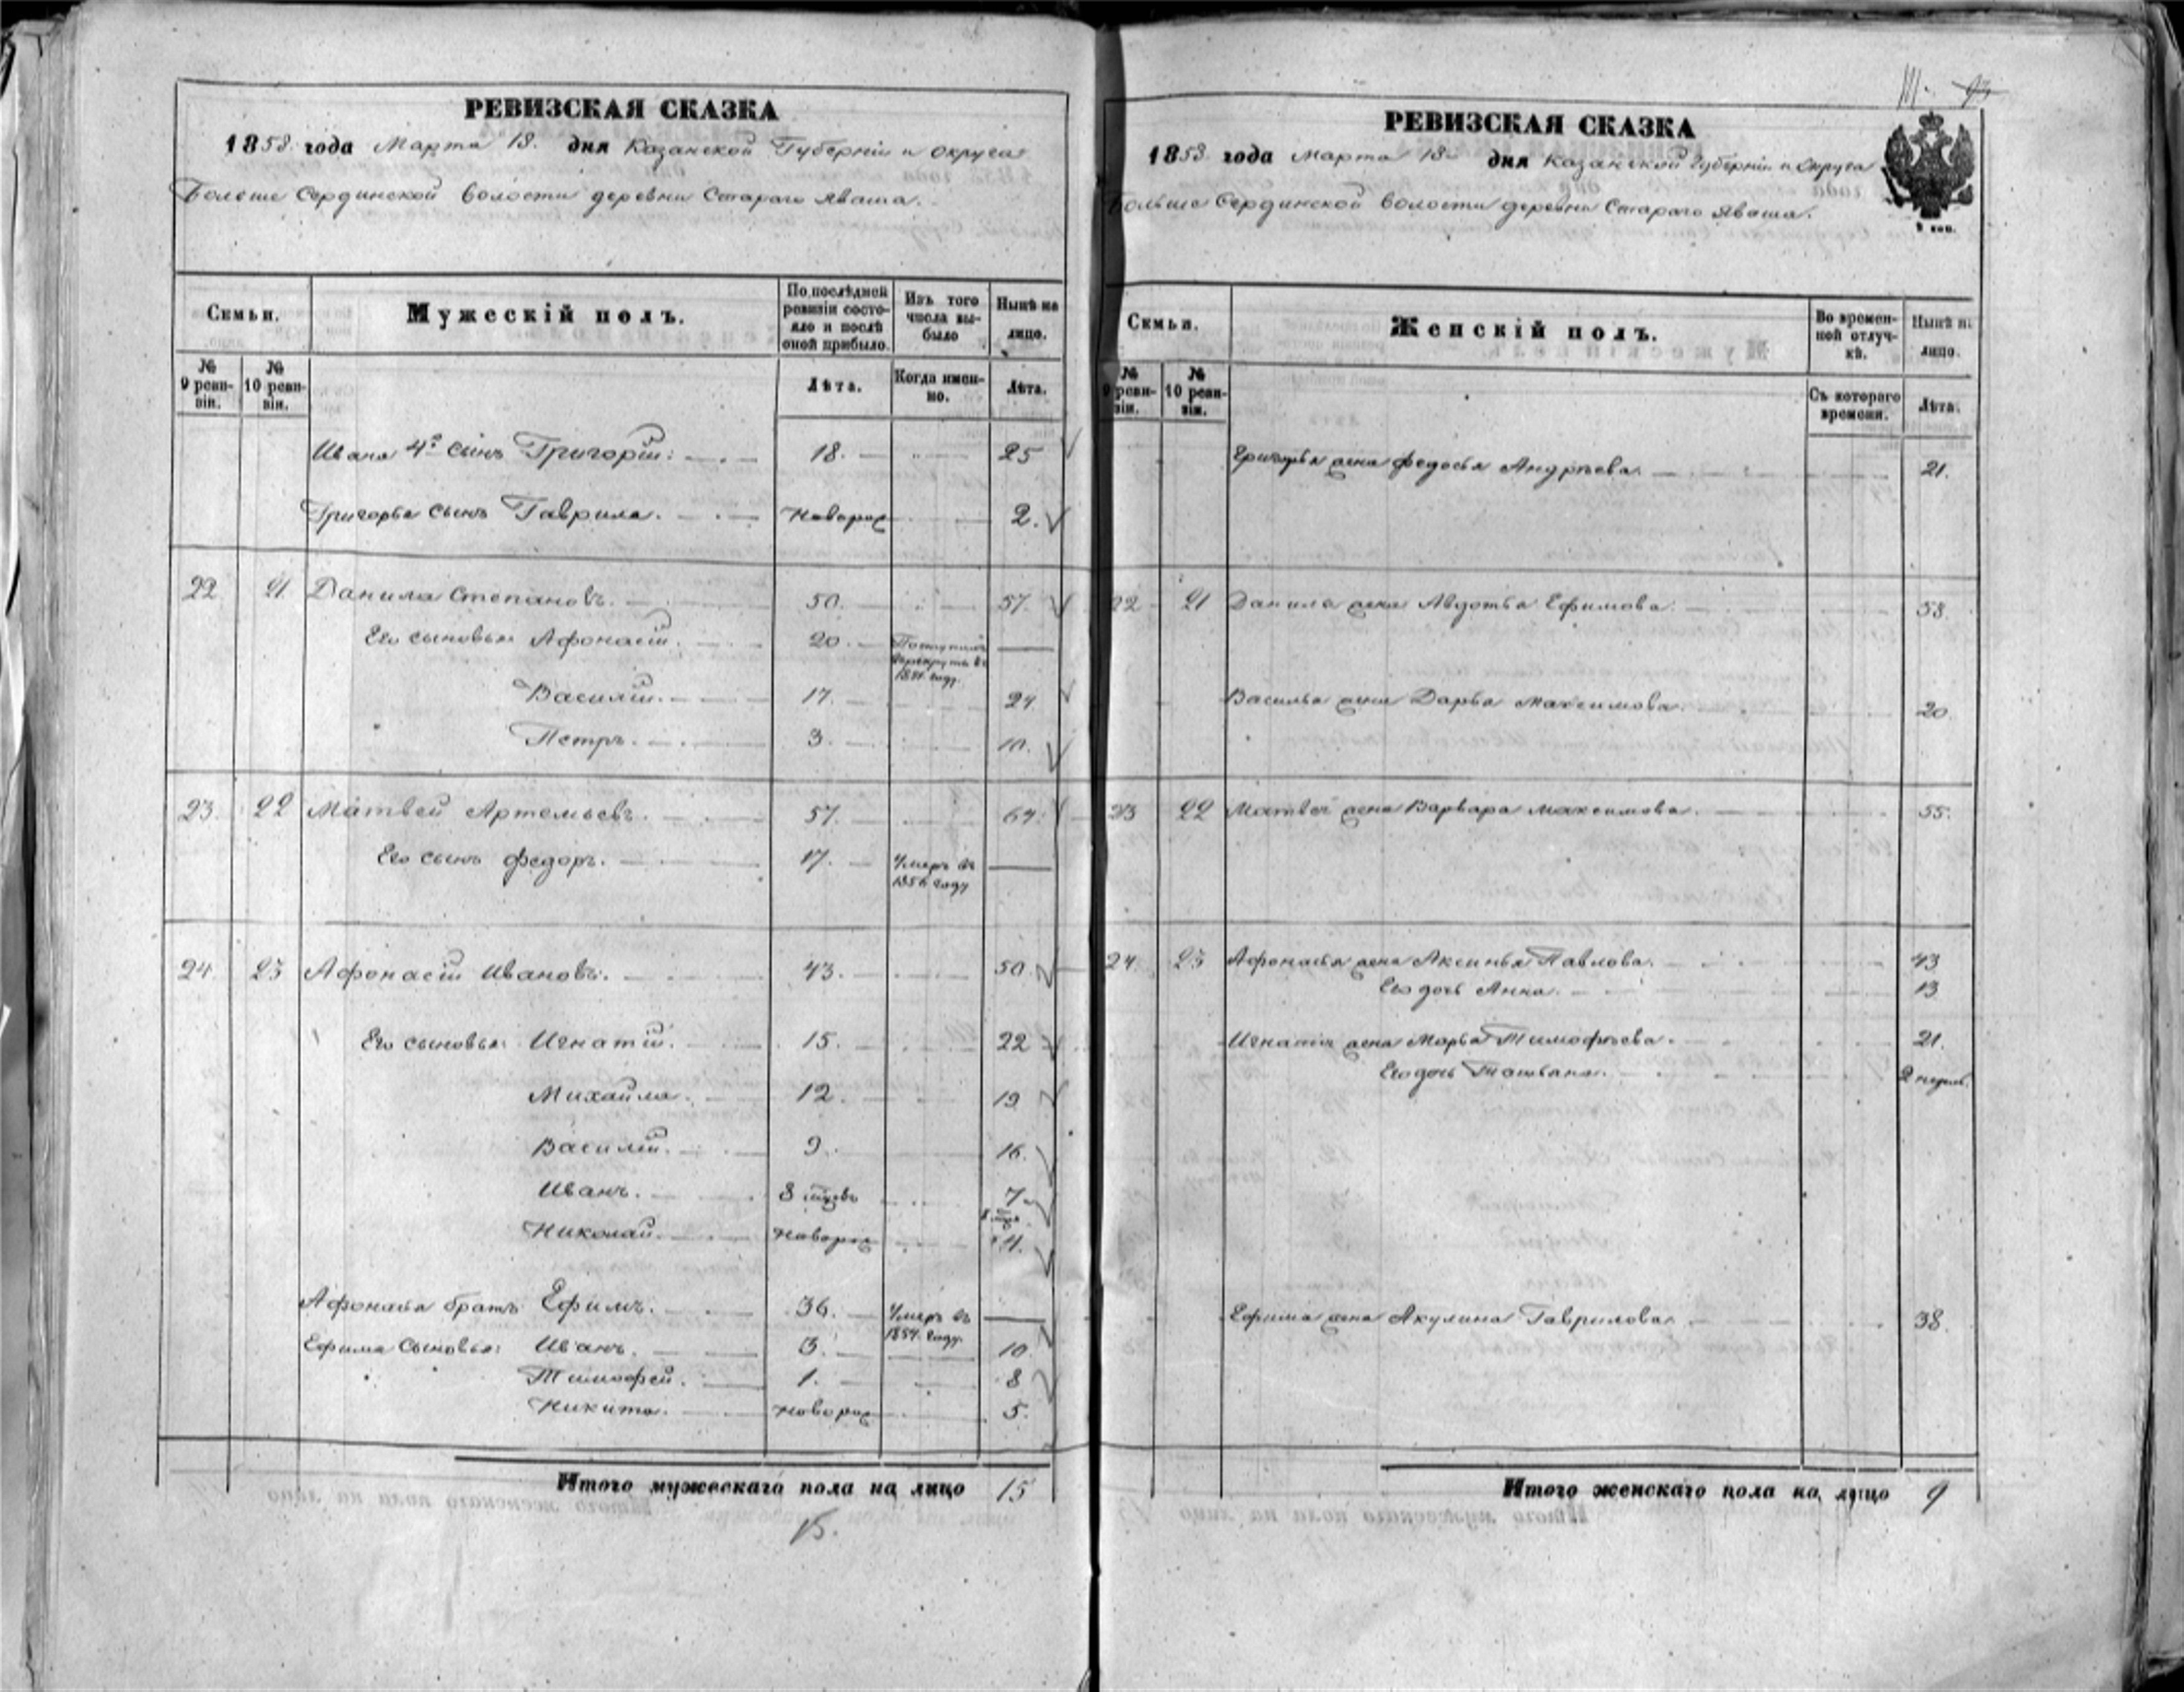 РЕВИЗСКАЯ СКАЗКА
1858 года Марта 18. дня Казанской Губернiи и округа
Больше Сердинской волости деревни Стараго Яваша.
Семьи.
Мужескiй полъ.
По последней ревизiи состояло и послѣ оной прибыло.
Изъ того числа выбыло
Нынѣ на лицо.
№ 9 ревизiи.
№ 10 ревизiи.
Лѣта.
Когда именно.
Лѣта.
Ивана 4º сынъ Григорiй. 18. 25
Григорья сынъ Гаврила. новорож 2.
22. 21 Данила Степановъ. 50. 57.
Его сыновья Афонасiй. 20. 1851. году
Василiй. 17. 24.
Петръ. 3. 10.
23. 22 Матвей Артемьевъ. 57. 64.
Его сынъ Федоръ. 17. Умеръ въ 1856 году
24. 23 Афонасiй Ивановъ. 43. 50.
Его сыновья: Игнатiй. 15. 22
Михайла. 12. 19
Василiй. 9. 16.
Иванъ. 8 7.
Николай. новорож 4.
Афонасья братъ Ефимъ. 36. Умеръ въ 1854. году.
Ефима сыновья: Иванъ. 3. 10.
Тимофей. 1. 8
Никита. новорож 5.
Итого мужескаго пола на лицо 15
15.
РЕВИЗСКАЯ СКАЗКА
1858 года Марта 18 дня Казанской Губернiи и Округа
Больше Сердинской волости деревни Стараго Яваша.
Семьи.
Женскiй полъ.
Во временной отлучкѣ.
Нынѣ на лицо.
№ 9 ревизiи.
№ 10 ревизiи.
Съ котораго времени.
Лѣта.
Григорья жена Федосья Андрѣева. 21.
22 21 Данила жена Авдотья Ефимова. 58.
Василья жена Дарья Максимова. 20
23 22 Матвея жена Варвара Максимова. 55.
24. 23 Афонасья жена Аксинья Павлова. 43
Его дочь Анна. 13
Игнатiя жена Марья Тимофѣева. 21.
Его дочь Татьяна. 2 недѣл.
Ефима жена Акулина Гаврилова. 38.
Итого женскаго пола на лицо 9